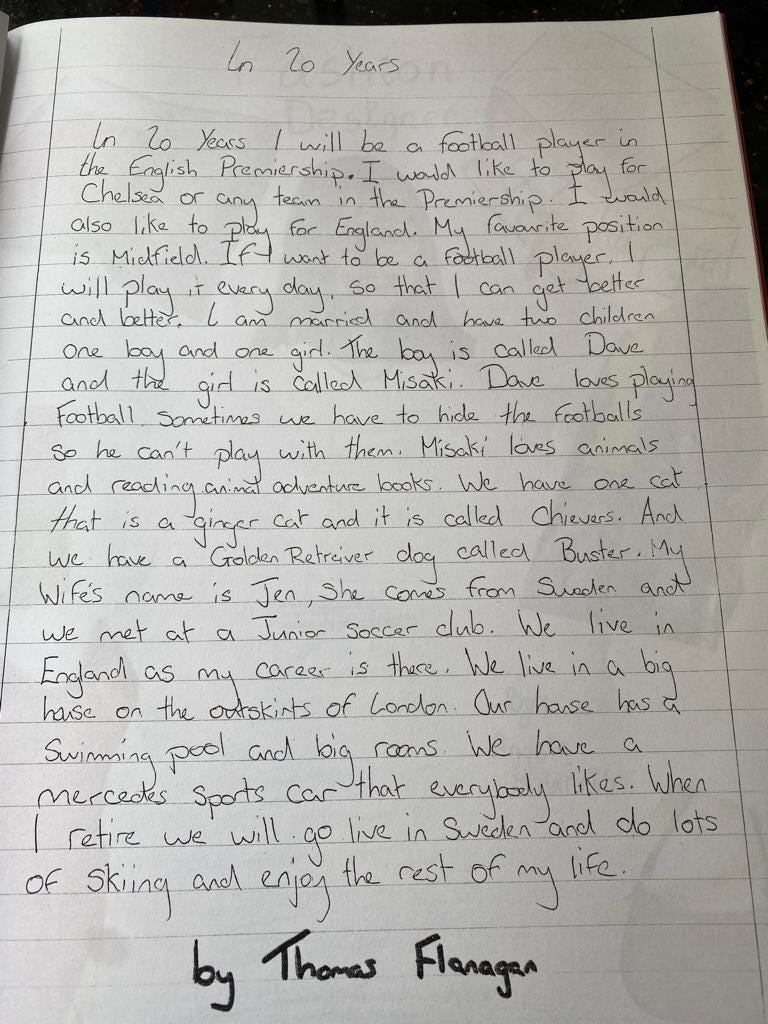 In 20 Years
In 20 Years I will be a football player in
the English Premiership. I would like to play for
Chelsea or any team in the Premiership. I would
also like to play for England. My favourite position
is Midfield. If I want to be a football player, I
will play it every day, so that I can get better
and better. I am married and have two children
one boy and one girl. The boy is called Dave
and the girl is called Misaki. Dave loves playing
Football. Sometimes we have to hide the footballs
so he can't play with them. Misaki loves animals
and reading animal adventure books. We have one cat
that is a ginger cat and it is called Chievers. And
we have a Golden Retreiver dog called Buster. My
Wife's name is Jen, She comes from Sweden and
we met at a Junior Soccer club. We live in
England as my career is there. We live in a big
house on the outskirts of London. Our house has a
Swimming pool and big rooms. We have a
Mercedes Sports Car that everybody likes. When
I retire we will go live in Sweden and do lots
of Skiing and enjoy the rest of my life.
by Thomas Flanagan